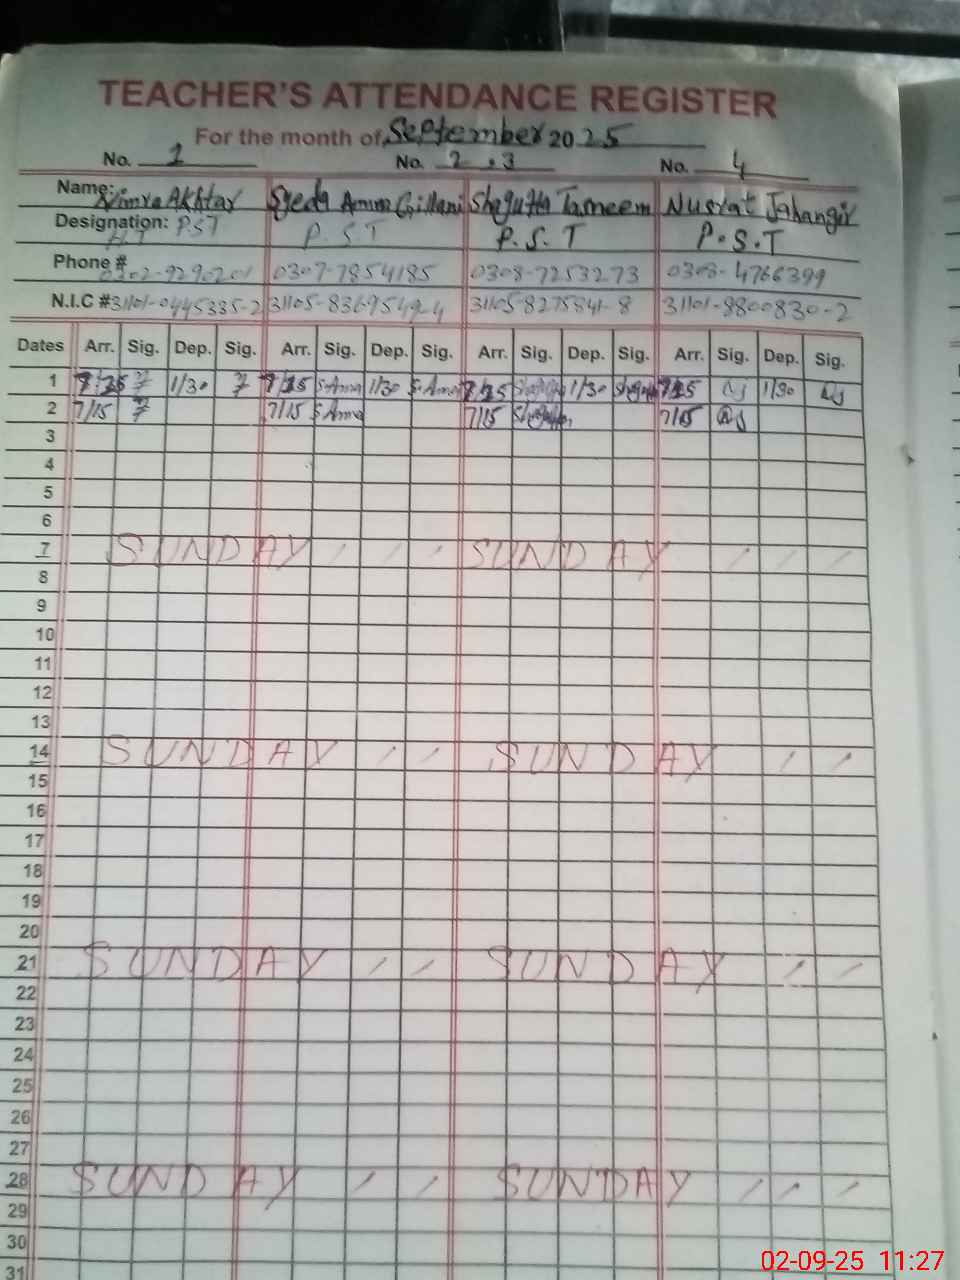 TEACHER'S ATTENDANCE REGISTER
For the month of September 2025
No. 1 No. 2, 3 No. 4
Name: Nimra Akhtar Syeda Amna Gillani Shagufta Tasneem Nusrat Jahangir
Designation: PST P.S.T P.S.T P.S.T
H.T
Phone # 0302-9290201 0307-7854185 0308-7253273 0303-4766399
N.I.C # 31101-0445335-2 31105-8369549-4 31105-8275841-8 31101-8800830-2
Dates Arr. Sig. Dep. Sig. Arr. Sig. Dep. Sig. Arr. Sig. Dep. Sig. Arr. Sig. Dep. Sig.
1 1/30 S.Amna 1/30 S.Amna 1/30 1/30
2 7/15 7/15 S.Amna 7/15 7/15
3
4
5
6
7 SUNDAY SUNDAY
8
9
10
11
12
13
14 SUNDAY SUNDAY
15
16
17
18
19
20
21 SUNDAY SUNDAY
22
23
24
25
26
27
28 SUNDAY SUNDAY
29
30
31
02-09-25 11:27